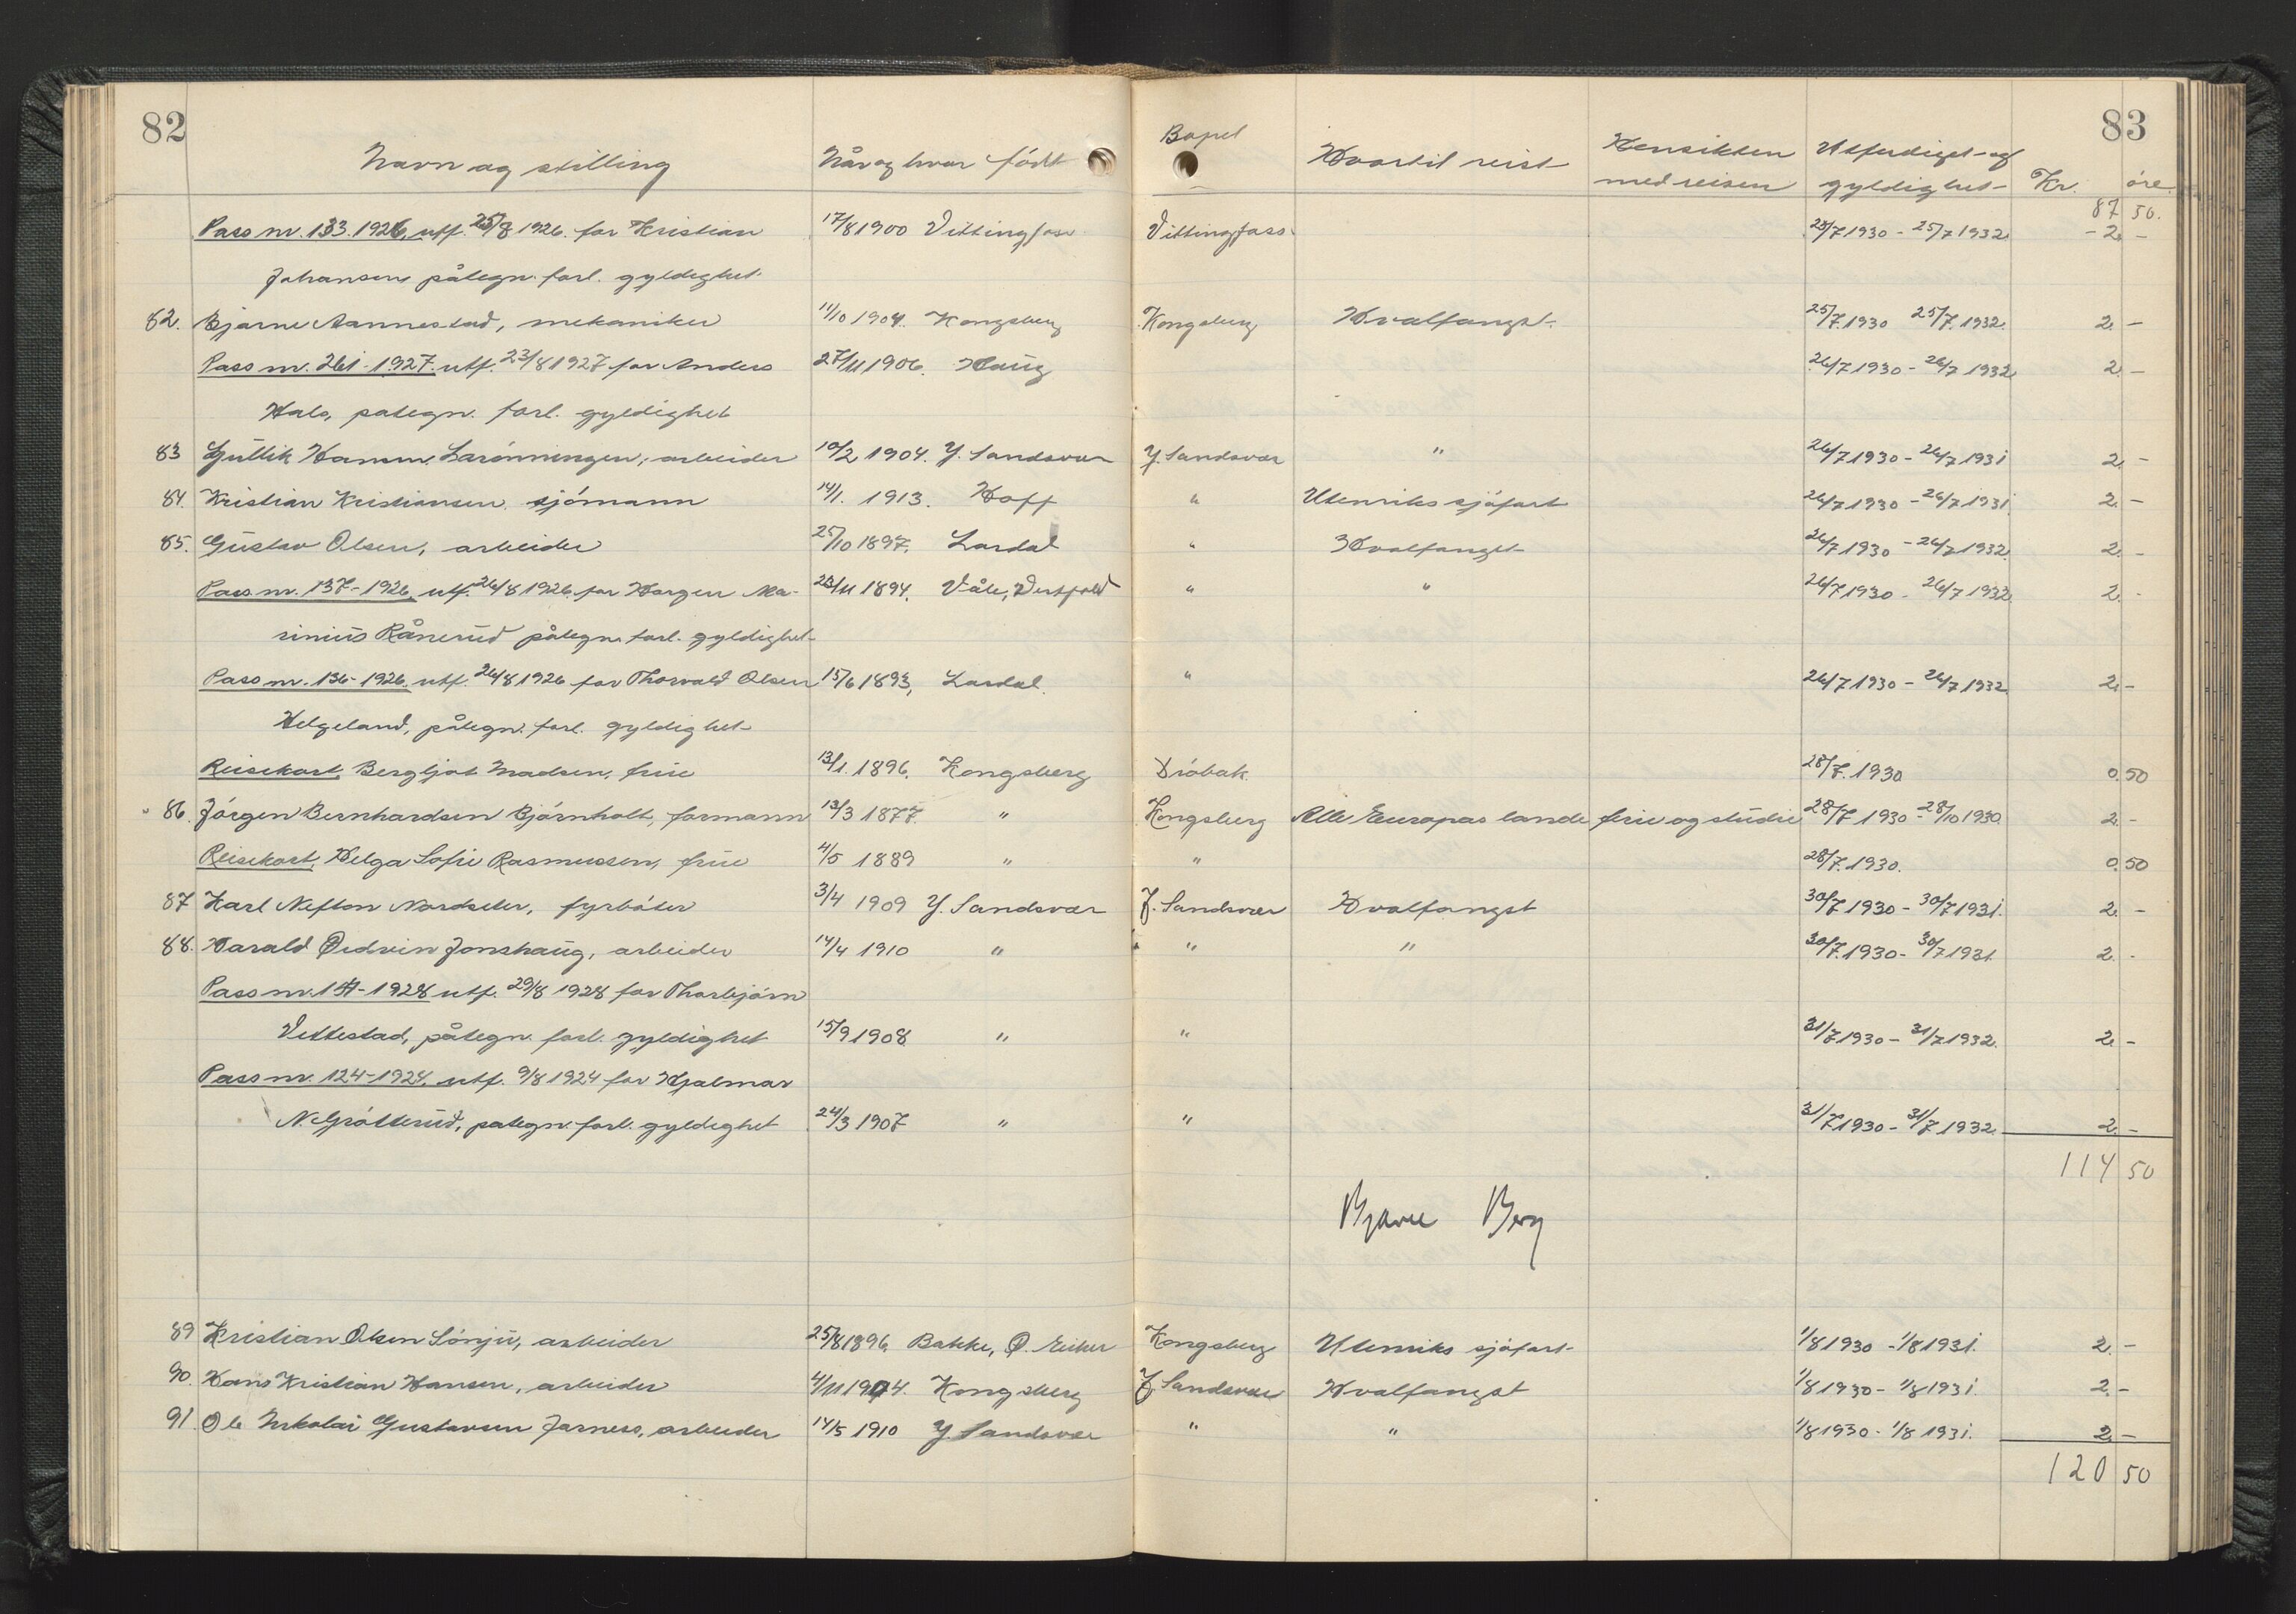 82
83
Navn og stilling Når og hvor född Bopel Hvortil reist Hensikten med reisen Utferdiget- og gyldighet- Kr. öre.
87 50.
Pass nr. 133. 1926, utf. 25/8 1926. for Kristian 17/8 1900 Vittingfoss Vittingfoss 25/7 1930 - 25/7 1932. - 2. -
Johansen, påtegn. forl. gyldighet.
82. Bjarne Aannestad, mekaniker 11/10 1904. Kongsberg Kongsberg Hvalfangst. 25/7. 1930 25/7. 1932. 2. -
Pass nr. 261 - 1927. utf. 23/8 1927 for Anders 27/11 1906. Haug 26/7 1930 - 26/7 1932. 2. -
Hals, pategn. forl. gyldighet
83 Gullik Hansen Larönningen, arbeider 10/2 1904. Y. Sandsvær Y. Sandsvær " 26/7 1930 - 26/7 1931 2. -
84. Kristian Kristiansen, sjömann 14/1. 1913. Hoff " Utenriks sjöfart 26/7 1930 - 26/7 1931. 2. -
85. Gustav Olsen, arbeider 25/10 1897. Lardal " Hvalfangst 26/7 1930 - 26/7 1932. 2. -
Pass nr. 137 - 1926. utf. 26/8 1926. for Horgen Ma- 23/11 1894. Våle, Vestfold " " 26/7 1930 - 26/7 1932. 2. -
rinius Rånerud påtegn. forl. gyldighet-
Pass nr. 136 - 1926. utf. 26/8 1926 for Thorvald Olsen 15/6 1893, Lardal. " 26/7 1930 - 26/7 1932 2. -
Helgeland, påtegn. forl. gyldighet-
Reisekort, Bergljot Madsen, frue 13/1. 1896. Kongsberg Dröbak. 28/7. 1930 0.50
86. Jörgen Bernhardsen Björnholt, formann 13/3 1877. " Kongsberg Alle Europas lande ferie og studie 28/7 1930 - 28/10 1930. 2. -
Reisekort, Helga Sofie Rasmussen, frue 4/5 1889 " " 28/7. 1930. 0.50
87 Karl Nefton Nordseter, fyrböter 3/4 1909 Y. Sandsvær Y. Sandsvær Hvalfangst 30/7 1930 - 30/7 1931. 2. -
88. Harald Oedvin Jonshaug, arbeider 14/4 1910 " " " 30/7. 1930 - 30/7 1931. 2. -
Pass nr. - 1928 utf. 29/8 1928 for Thorbjörn
Vettestad, påtegn. forl. gyldighet 15/9 1908 " " 31/7 1930 - 31/7 1932. 2. -
Pass nr. 124 - 1924. utf. 9/8 1924 for Hjalmar
N. Gråtterud, pategn. forl. gyldighet 24/3 1907 " " 31/7 1930 - 31/7 1932. 2. -
114 50
Bjarne Berg
89 Kristian Olsen Sönju, arbeider 25/8 1896, Bakke, Ö. Eiker Kongsberg Utenriks sjöfart- 1/8 1930 - 1/8 1931. 2. -
90. Hans Kristian Hansen, arbeider 4/11 1904. Kongsberg Y. Sandsvær Hvalfangst 1/8 1930 - 1/8 1931. 2. -
91. Ole Nikolai Gustavsen Jarness, arbeider 14/5 1910 Y. Sandsvær " " 1/8 1930 - 1/8 1931. 2. -
120 50